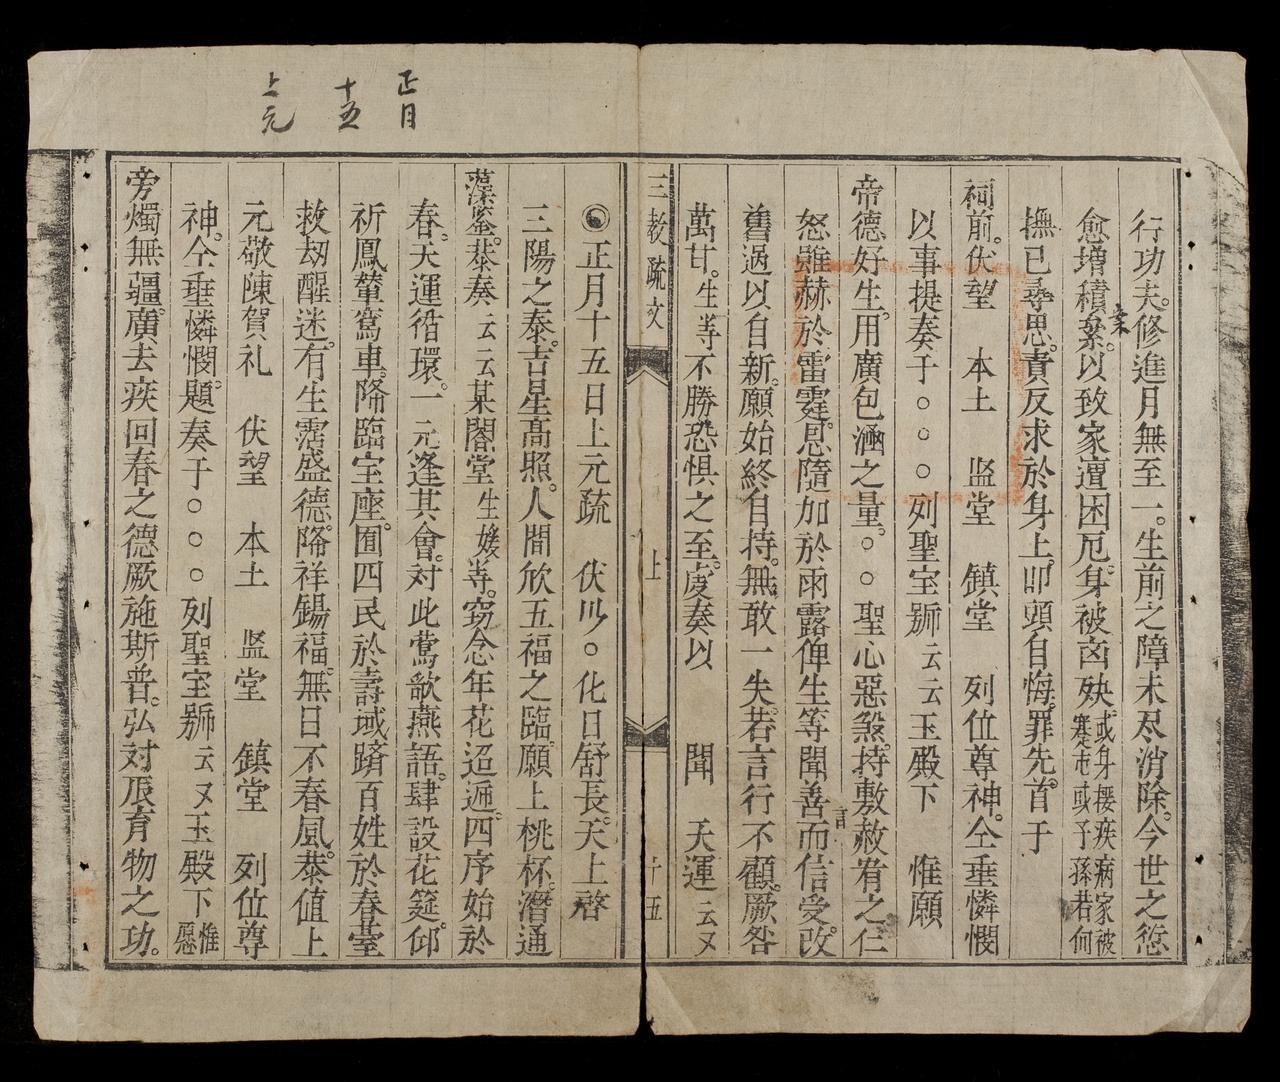 正月
十五
上元
行功夫。修進月無至一。生前之障未尽消除。今世之愆
愈增積氽。以致家遭困厄。身被凶殃。或身接疾病家被蹇屯或子孫若何
撫已尋思。責反求於身上。叩頭自悔。罪先。首于
祠前。伏望 本土 监堂 鎮堂 列位尊神。仝垂憐憫
以事提奏于。。。列聖宝號云云玉殿下 惟願
帝德好生。用廣包涵之量。。。聖心惡煞。持敷赦宥之仁
怒雖赫於雷霆。恩隨加於雨露俾生等聞善言而信受。改
舊過以自新。願始終自持。無敢一失。若言行不顧。厥咎
萬甘。生等不勝恐惧之至。虔奏以 聞 天運云又
三教疏文 上 十五
正月十五日上元疏 伏以。化日舒長。天上啓
三陽之泰。吉星高照。人間欣五福之臨。願上桃杯。潛通
藻鉴。恭奏云云某閣堂生媛等。窃念年花迢逓。四序始於
春。天運循環。一元逢其會。対此鶯歌燕語。肆設花筵。仰
祈鳳輦鸾車。降臨宝座。囿四民於壽域躋百姓於春臺
救刼醒迷。有生霑盛德。降祥錫福。無日不春風。恭值上
元敬陳賀礼 伏望 本土 监堂 鎮堂 列位尊
神。仝垂憐憫。題奏于。。。列聖宝號云又玉殿下惟愿
旁燭無疆。廣去疾回春之德厥施斯普。弘対辰育物之功。